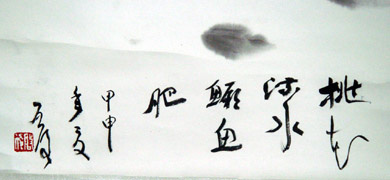 桃花
流水
鳜鱼
肥
甲申
年夏